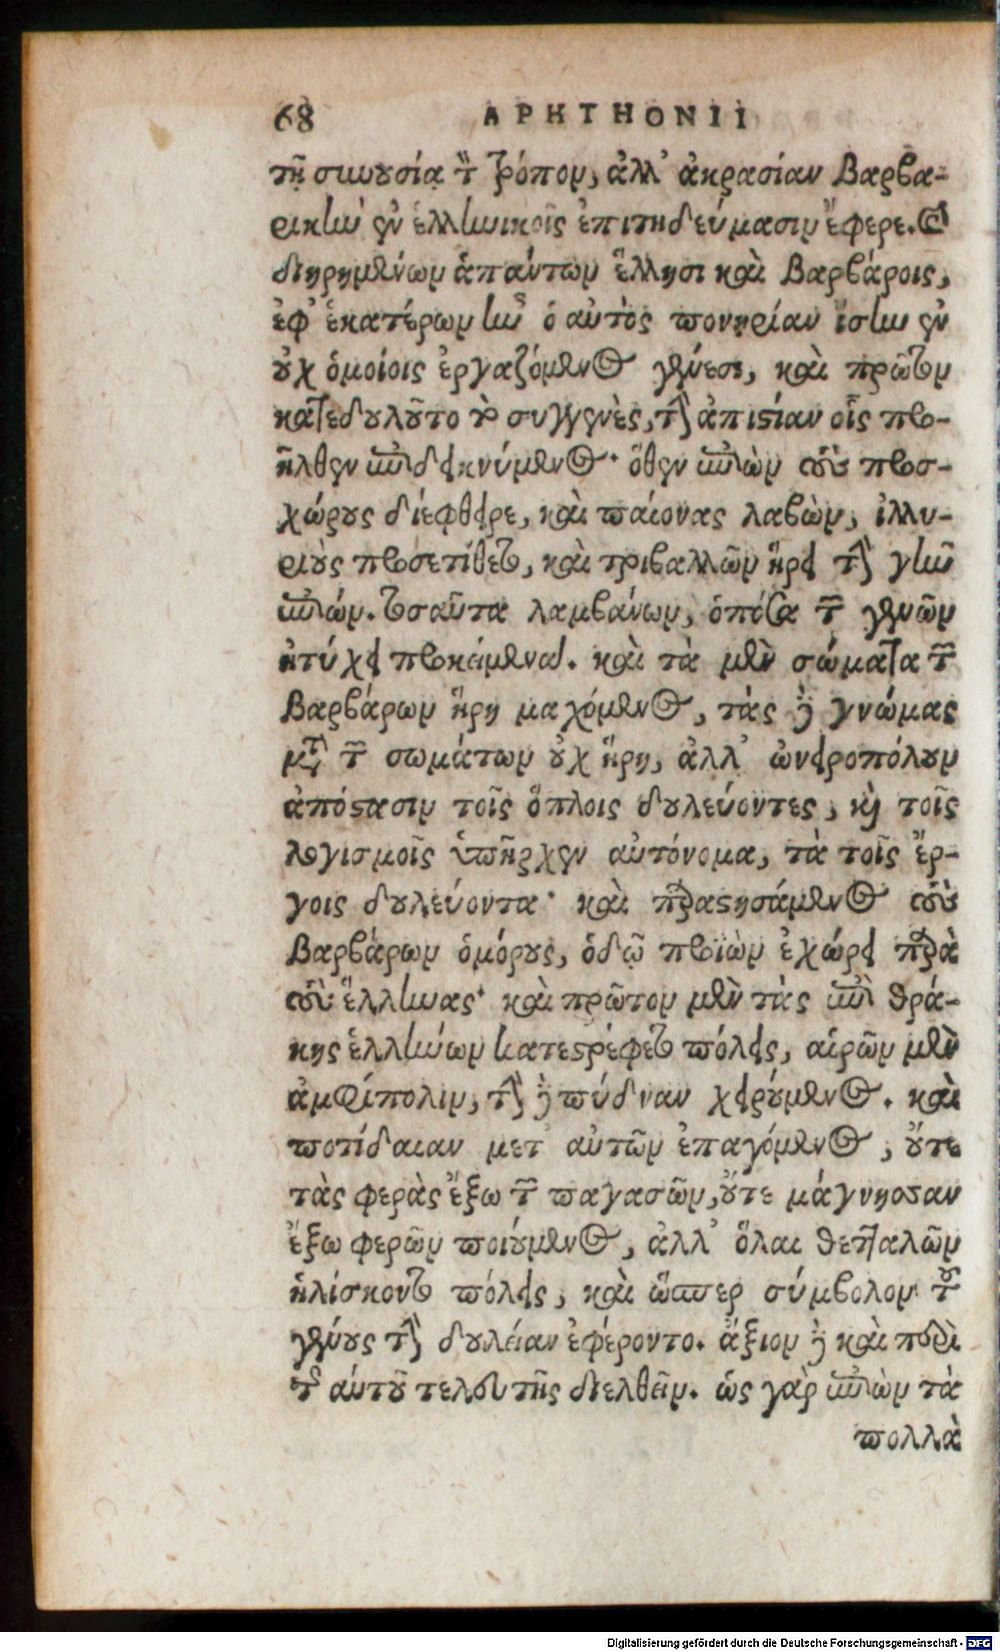 68 APHTHONII
τῇ συνουσίᾳ τὸν τρόπον, ἀλλ' ἀκρασίαν βαρβα-
ρικὴν ἐν ἑλληνικοῖς ἐπιτηδεύμασιν ἔφερε. καὶ
διῃρημένων ἁπάντων ἕλλησι καὶ βαρβάροις,
ἐφ' ἑκατέρων ἦν ὁ αὐτὸς πονηρίαν ἴσην ἐν
οὐχ ὁμοίοις ἐργαζόμενος γένεσι, καὶ πρῶτον
κατεδουλοῦτο τὸ συγγενὲς, τὴν ἀπιστίαν οἷς προ-
ῆλθεν ἐπιδεικνύμενος· ὅθεν ἐπιὼν τοὺς προσ-
χώρους διέφθειρε, καὶ παίονας λαβὼν, ἰλλυ-
ριοὺς προσετίθετο, καὶ τριβαλλῶν ᾕρει τὴν γῆν
ἐπιών. τοσαῦτα λαμβάνων, ὁπόσα τῶν γενῶν
ἠτύχει προκείμενα. καὶ τὰ μὲν σώματα τῶν
βαρβάρων ᾕρη μαχόμενος, τὰς δὲ γνώμας
μετὰ τῶν σωμάτων οὐχ ᾕρη, ἀλλ' ὠνειροπόλουν
ἀπόστασιν τοῖς ὅπλοις δουλεύοντες, καὶ τοῖς
λογισμοῖς ὑπῆρχεν αὐτόνομα, τὰ τοῖς ἔρ-
γοις δουλεύοντα· καὶ παραστησάμενος τοὺς
βαρβάρων ὁμόρους, ὁδῷ προϊὼν ἐχώρει παρὰ
τοὺς ἕλληνας· καὶ πρῶτον μὲν τὰς ἐπὶ θρά-
κης ἑλλήνων κατεστρέφετο πόλεις, αἱρῶν μὲν
ἀμφίπολιν, τὴν δὲ πύδναν χειρούμενος. καὶ
ποτίδαιαν μετ' αὐτῶν ἐπαγόμενος, οὔτε
τὰς φερὰς ἔξω τῶν παγασῶν, οὔτε μάγνησσαν
ἔξω φερῶν ποιούμενος, ἀλλ' ὅλαι θετταλῶν
ἡλίσκοντο πόλεις, καὶ ὥσπερ σύμβολον τοῦ
γένους τὴν δουλείαν ἐφέροντο. ἄξιον δὲ καὶ περὶ
τῆς αὐτοῦ τελευτῆς διελθεῖν. ὡς γὰρ ἐπιὼν τὰ
πολλὰ
Digitalisierung gefördert durch die Deutsche Forschungsgemeinschaft - DFG